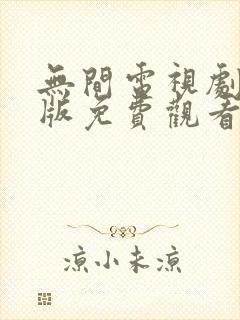 無間電視劇
版免費觀看
涼小未涼